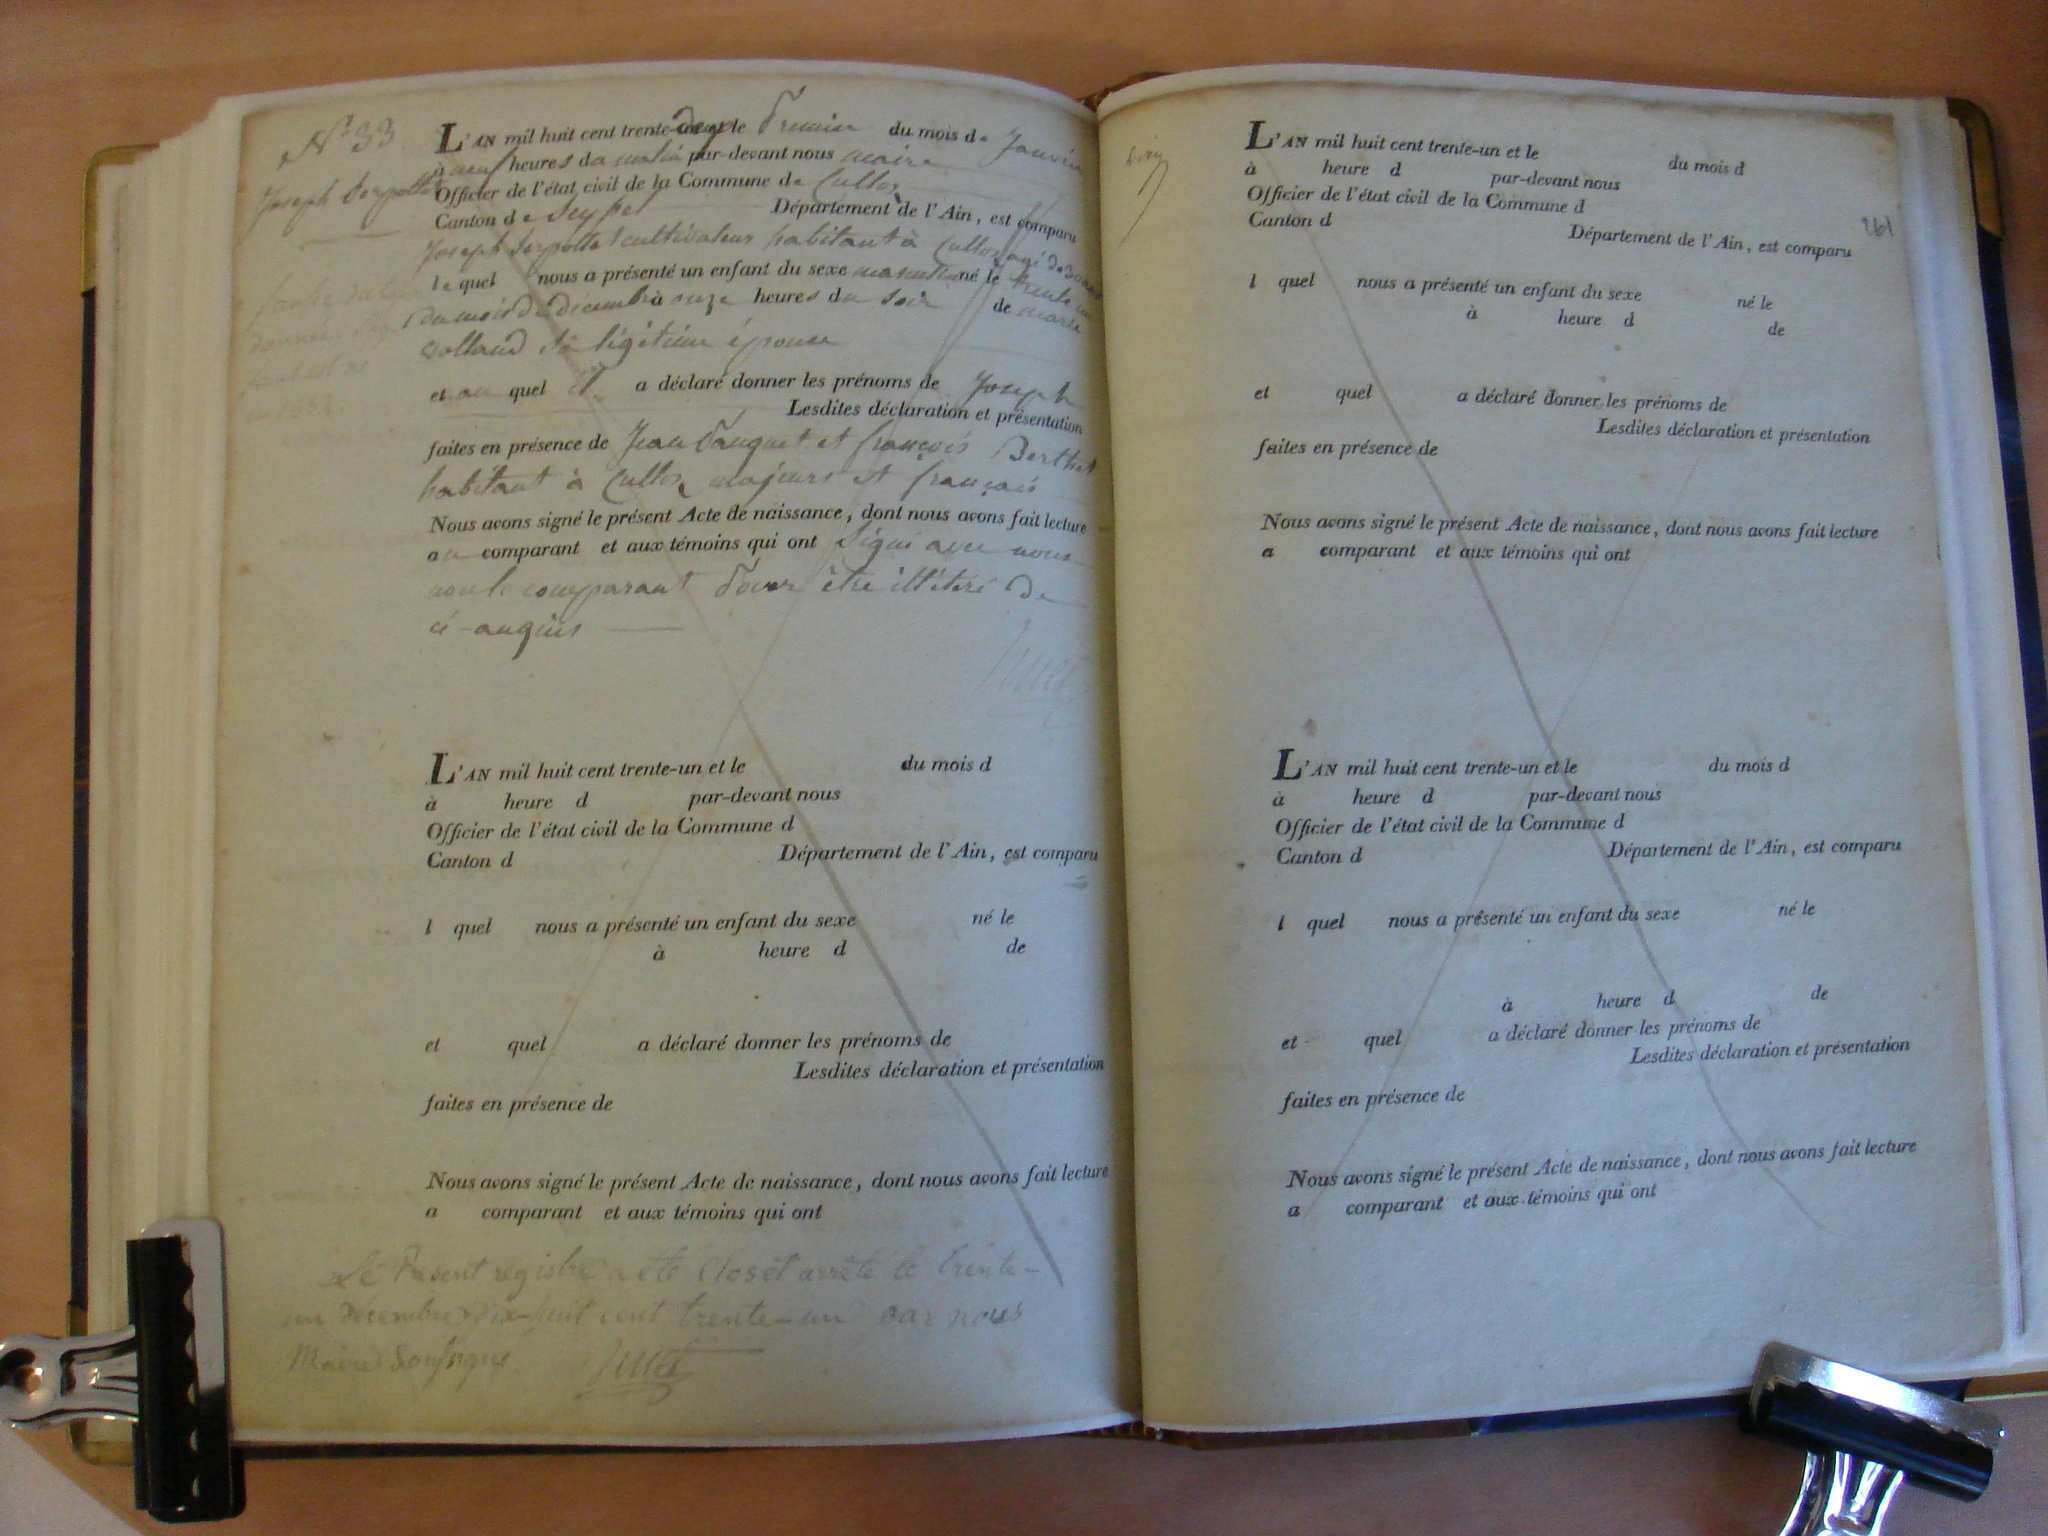 N° 33
L'AN mil huit cent trente-deux le Premier du mois de Janvier
à neuf heures du matin par-devant nous maire
Joseph Serpollet
Officier de l'état civil de la Commune de Culloz
Canton de Seyssel Département de l'Ain, est comparu
Joseph Serpollet cultivateur habitant à Culloz agé de
le quel nous a présenté un enfant du sexe masculin né le trente un
du mois de décembre à onze heures du soir de marie
sa légitime épouse
et au quel il a déclaré donner les prénoms de Joseph
Lesdites déclaration et présentation
faites en présence de Jean et françois Berthet
habitant à Culloz majeurs et français
Nous avons signé le présent Acte de naissance, dont nous avons fait lecture
au comparant et aux témoins qui ont signé avec nous
non le comparant pour être illétéré de
ce enquis
L'AN mil huit cent trente-un et le du mois d
à heure d par-devant nous
Officier de l'état civil de la Commune d
Canton d Département de l'Ain, est comparu
l quel nous a présenté un enfant du sexe né le
à heure d de
et quel a déclaré donner les prénoms de
Lesdites déclaration et présentation
faites en présence de
Nous avons signé le présent Acte de naissance, dont nous avons fait lecture
a comparant et aux témoins qui ont
Le Présent registre a été Clos et arrêté le trente-
un décembre dix-huit cent trente-un par nous
Maire Soussigné
L'AN mil huit cent trente-un et le du mois d
à heure d par-devant nous
Officier de l'état civil de la Commune d
261
Canton d Département de l'Ain, est comparu
l quel nous a présenté un enfant du sexe né le
à heure d de
et quel a déclaré donner les prénoms de
Lesdites déclaration et présentation
faites en présence de
Nous avons signé le présent Acte de naissance, dont nous avons fait lecture
a comparant et aux témoins qui ont
L'AN mil huit cent trente-un et le du mois d
à heure d par-devant nous
Officier de l'état civil de la Commune d
Canton d Département de l'Ain, est comparu
l quel nous a présenté un enfant du sexe né le
à heure d de
et quel a déclaré donner les prénoms de
Lesdites déclaration et présentation
faites en présence de
Nous avons signé le présent Acte de naissance, dont nous avons fait lecture
a comparant et aux témoins qui ont